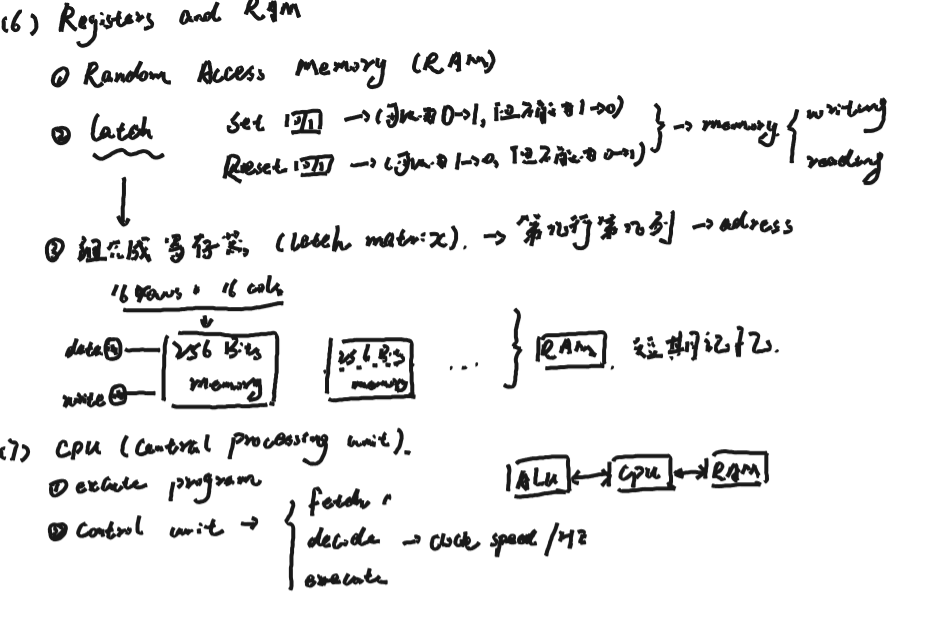 (6) Registers and RAM
① Random Access Memory (RAM)
② latch
Set 门 → (可从0→1, 但不能从1→0)
Reset 门 → (可从1→0, 但不能从0→1)
→ memory
writing
reading
③ 组合成寄存器 (latch matrix). → 第几行第几列 → adress
16 rows * 16 cols
data
write
256 Bits
memory
256 Bits
memory
...
RAM.
(7) CPU (Central processing unit).
① excute program
② Control unit →
fetch
decode → clock speed /HZ
execute
ALU ↔ CPU ↔ RAM